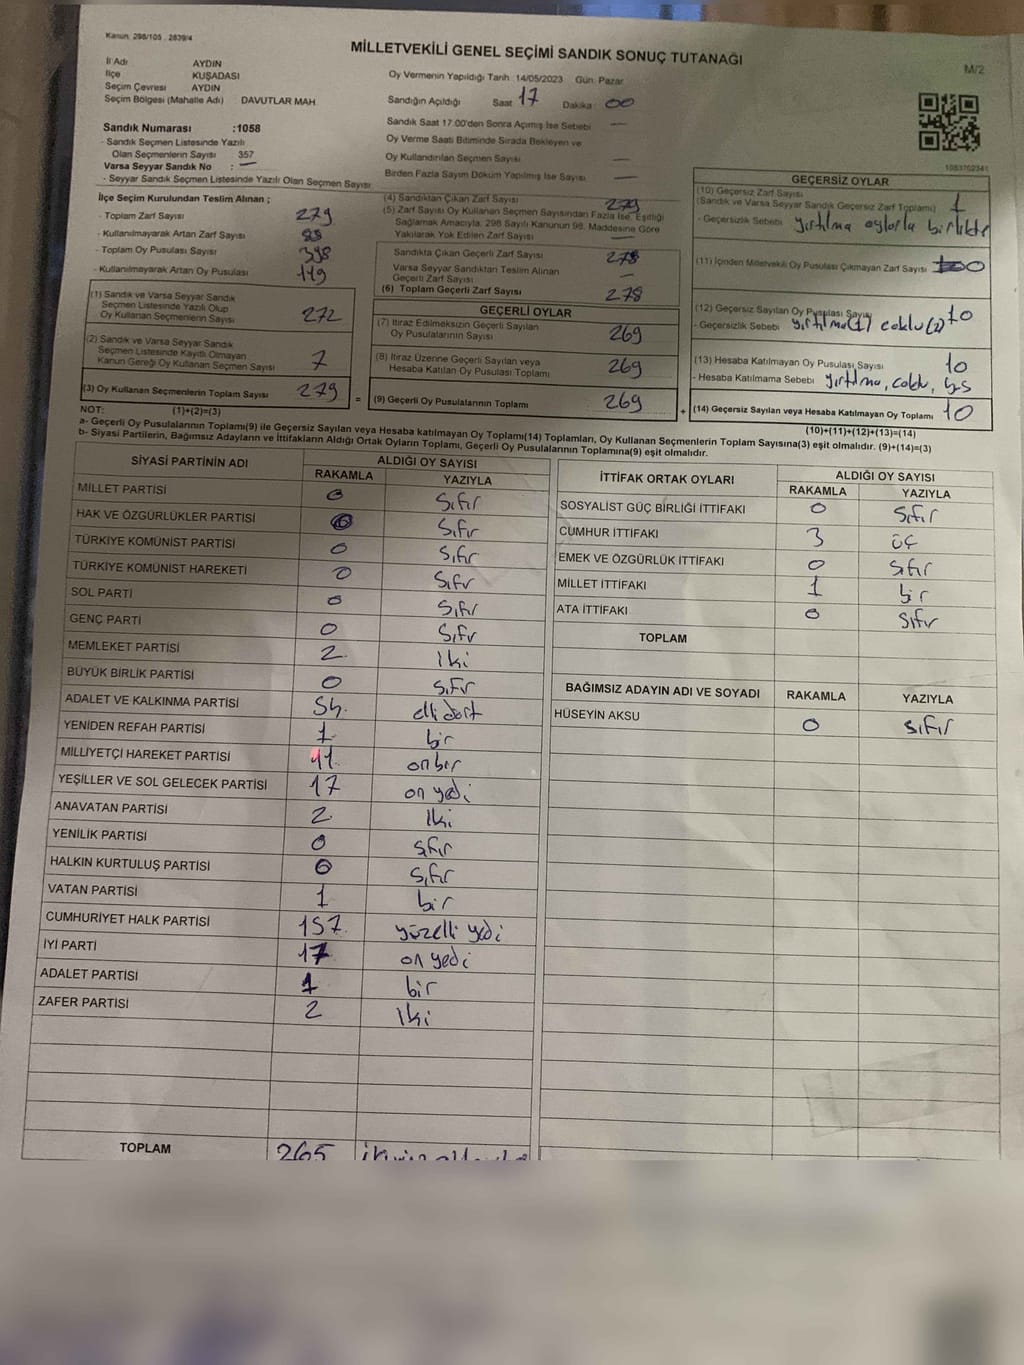 Kanun: 298/105 , 2839/4
MİLLETVEKİLİ GENEL SEÇİMİ SANDIK SONUÇ TUTANAĞI
M/2
İl Adı AYDIN
İlçe KUŞADASI
Seçim Çevresi AYDIN
Seçim Bölgesi (Mahalle Adı) DAVUTLAR MAH.
Sandık Numarası :1058
- Sandık Seçmen Listesinde Yazılı
Olan Seçmenlerin Sayısı 357
Varsa Seyyar Sandık No : —
- Seyyar Sandık Seçmen Listesinde Yazılı Olan Seçmen Sayısı
Oy Vermenin Yapıldığı Tarih :14/05/2023 Gün: Pazar
Sandığın Açıldığı Saat 17 Dakika 00
Sandık Saat 17.00'den Sonra Açımış İse Sebebi —
Oy Verme Saati Bitiminde Sırada Bekleyen ve
Oy Kullandırılan Seçmen Sayısı —
Birden Fazla Sayım Döküm Yapılmış İse Sayısı —
1083702341
İlçe Seçim Kurulundan Teslim Alınan ;
- Toplam Zarf Sayısı 279
- Kullanılmayarak Artan Zarf Sayısı
- Toplam Oy Pusulası Sayısı 398
- Kullanılmayarak Artan Oy Pusulası 119
(1) Sandık ve Varsa Seyyar Sandık
Seçmen Listesinde Yazılı Olup
Oy Kullanan Seçmenlerin Sayısı 272
(2) Sandık ve Varsa Seyyar Sandık
Seçmen Listesinde Kayıtlı Olmayan
Kanun Gereği Oy Kullanan Seçmen Sayısı 7
(3) Oy Kullanan Seçmenlerin Toplam Sayısı 279 =
(4) Sandıktan Çıkan Zarf Sayısı 279
(5) Zarf Sayısı Oy Kullanan Seçmen Sayısından Fazla İse, Eşitliği
Sağlamak Amacıyla, 298 Sayılı Kanunun 98. Maddesine Göre
Yakılarak Yok Edilen Zarf Sayısı —
Sandıkta Çıkan Geçerli Zarf Sayısı 278
Varsa Seyyar Sandıktan Teslim Alınan
Geçerli Zarf Sayısı —
(6) Toplam Geçerli Zarf Sayısı 278
GEÇERLİ OYLAR
(7) İtiraz Edilmeksizin Geçerli Sayılan
Oy Pusulalarının Sayısı 269
(8) İtiraz Üzerine Geçerli Sayılan veya
Hesaba Katılan Oy Pusulası Toplamı 269
(9) Geçerli Oy Pusulalarının Toplamı 269 +
GEÇERSİZ OYLAR
(10) Geçersiz Zarf Sayısı
(Sandık ve Varsa Seyyar Sandık Geçersiz Zarf Toplamı) 1
- Geçersizlik Sebebi yırtılma oylarla birlikte
(11) İçinden Milletvekili Oy Pusulası Çıkmayan Zarf Sayısı 0
(12) Geçersiz Sayılan Oy Pusulası Sayısı 10
- Geçersizlik Sebebi yırtılma(1) coklu(2)
(13) Hesaba Katılmayan Oy Pusulası Sayısı 10
- Hesaba Katılmama Sebebi yırtılma, coklu,
(14) Geçersiz Sayılan veya Hesaba Katılmayan Oy Toplamı 10
NOT: (1)+(2)=(3)
(10)+(11)+(12)+(13)=(14)
a- Geçerli Oy Pusulalarının Toplamı(9) ile Geçersiz Sayılan veya Hesaba katılmayan Oy Toplamı(14) Toplamları, Oy Kullanan Seçmenlerin Toplam Sayısına(3) eşit olmalıdır. (9)+(14)=(3)
b- Siyasi Partilerin, Bağımsız Adayların ve İttifakların Aldığı Ortak Oyların Toplamı, Geçerli Oy Pusulalarının Toplamına(9) eşit olmalıdır.
SİYASİ PARTİNİN ADI ALDIĞI OY SAYISI
RAKAMLA YAZIYLA
MİLLET PARTİSİ 0 Sıfır
HAK VE ÖZGÜRLÜKLER PARTİSİ 0 Sıfır
TÜRKİYE KOMÜNİST PARTİSİ 0 Sıfır
TÜRKİYE KOMÜNİST HAREKETİ 0 Sıfır
SOL PARTİ 0 Sıfır
GENÇ PARTİ 0 Sıfır
MEMLEKET PARTİSİ 2 iki
BÜYÜK BİRLİK PARTİSİ 0 Sıfır
ADALET VE KALKINMA PARTİSİ 54 elli dört
YENİDEN REFAH PARTİSİ 1 bir
MİLLİYETÇİ HAREKET PARTİSİ 11 on bir
YEŞİLLER VE SOL GELECEK PARTİSİ 17 on yedi
ANAVATAN PARTİSİ 2 iki
YENİLİK PARTİSİ 0 sıfır
HALKIN KURTULUŞ PARTİSİ 0 sıfır
VATAN PARTİSİ 1 bir
CUMHURİYET HALK PARTİSİ 157 yüzelli yedi
İYİ PARTİ 17 on yedi
ADALET PARTİSİ 1 bir
ZAFER PARTİSİ 2 iki
TOPLAM 265
İTTİFAK ORTAK OYLARI ALDIĞI OY SAYISI
RAKAMLA YAZIYLA
SOSYALİST GÜÇ BİRLİĞİ İTTİFAKI 0 Sıfır
CUMHUR İTTİFAKI 3 üç
EMEK VE ÖZGÜRLÜK İTTİFAKI 0 sıfır
MİLLET İTTİFAKI 1 bir
ATA İTTİFAKI 0 sıfır
TOPLAM
BAĞIMSIZ ADAYIN ADI VE SOYADI RAKAMLA YAZIYLA
HÜSEYİN AKSU 0 sıfır